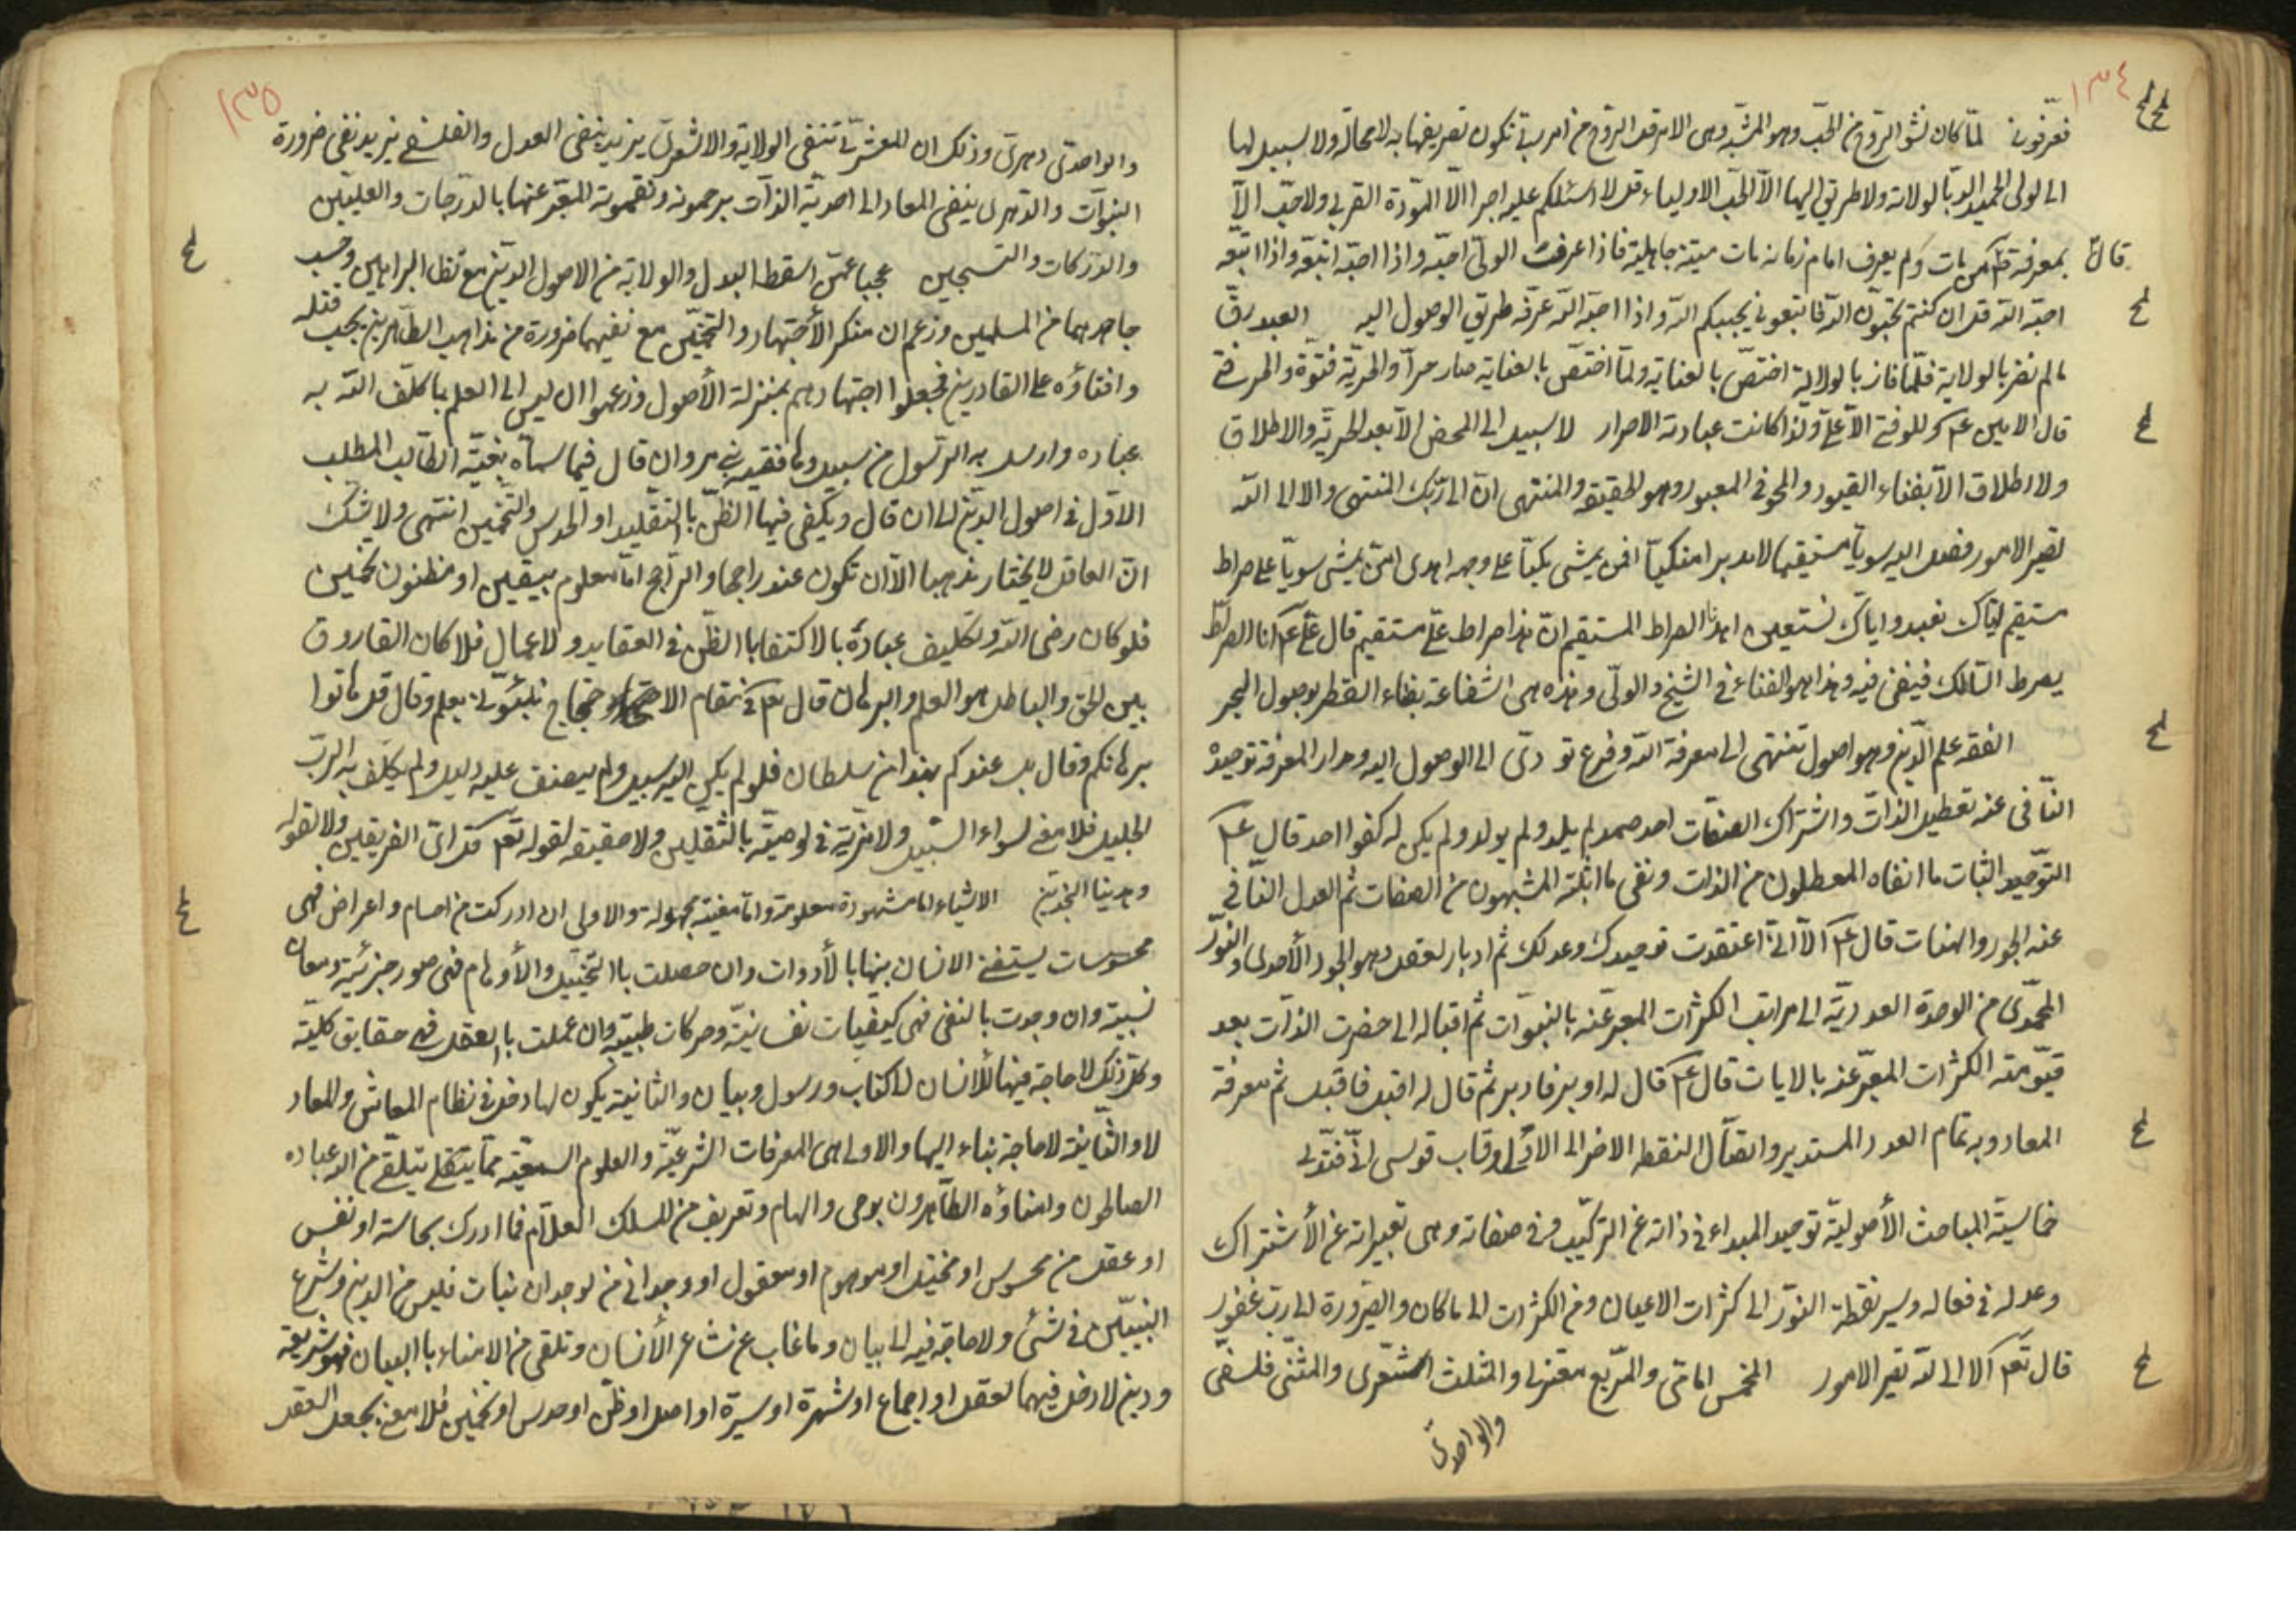 ١٣٤
فعرّفوني لمّا كان نشو الروح من الحبّ وهو المشيّة وهي الامر قل الروح من امر ربي تكون تعريفها به لا محالة ولا سبيل لها
الى الولى الحميد الا بالولاية ولا طريق اليها الا الحبّ الاولياء قل لا اسئلكم عليه اجرا الّا المودّة القربى ولا حبّ الّا
قال بمعرفة من مات ولم يعرف امام زمانه مات ميتة جاهلية فاذا عرفت الولىّ احبّه واذا احبّه اتبعه واذا اتبعه
احبّه اللّه قل ان كنتم تحبّون اللّه فاتبعونى يحببكم اللّه واذا احبّه اللّه عرّفه طريق الوصول اليه العبد رقّ
ما لم نضر بالولاية فلمّا فاز بالولاية اختصّ بالعناية ولمّا اختصّ بالعناية صار حرّا والحريّة فتوّة والحر فتى
قال الامين ع م لا فتى الّا علىّ ولذا كانت عبادته الاحرار لا سبيل الى المحض الّا بعد الحريّة والاطلاق
ولا اطلاق الّا بفناء القيود والمحو فى المعبود وهو الحقيقة والمنتهى انّ الى ربّك المنتهى والا الى اللّه
تصير الامور فصل اليه سويّا مستقيما لا مدبرا منكبّا افمن يمشى مكبّا على وجهه اهدى امّن يمشى سويّا على صراط
مستقيم ايّاك نعبد واياك نستعين اهدنا الصراط المستقيم انّ هذا صراط علىّ مستقيم قال علىّ ع م انا الصراط
يصرط السّالك فيفنى فيه وهذا هو الفناء فى الشيخ والولىّ وهذه هى الشفاعة بفناء القطر بوصول البحر
الفقه علم الدّين وهو اصول تنتهى الى معرفة اللّه وفرع تو دّى الى الوصول اليه ومدار المعرفة توحيده
النّافى عنه تعطيل الذات واشتراك الصفات احد صمد لم يلد ولم يولد ولم يكن له كفوا احد قال ع م
التوّحيد اثبات ما انفاه المعطلون من الذات ونفى ما اثبته المشبهون من الصفات ثم العدل النّافى
عنه الجور والهنات قال ع م الّا انّى اعتقدت توحيدك وعدلك ثم ادبار العقل وهو الجود الأحدى والنوّر
المحمّدى من الوحدة العدديّة الى مراتب الكثرات المعبر عنه بالنبوّات ثم اقباله الى حضرت الذّات بعد
الكثرات المعبّر عنه بالايات قال ع م قال له ادبر فادبر ثم قال له اقبل فاقبل ثم معرفة
المعاد وبه تمام العدد المستدير واتصّال النقطه الاخر الى الاوّل وقاب قوسى
خماسيّة المباحث الأصوليّة توحيد المبداء فى ذاته عن التركيّب وفى صفاته وهى تعبيراته عن الأشتراك
وعدله فى فعاله وسير نقطة النوّر الى كثرات الاعيان ومن الكثرات الى ما كان والضّرورة الى ربّ غفور
قال تع الا الى اللّه تصير الامور المخمس امامّى والمّربع معتزلى والمثلث اشعرى والمثنّى فلسفّى
والواحدى
١٣٥
والواحدى دهرى وذلك ان المعتزلى تنفى الولاية والاشعرىّ يزيد بنفى العدل والفلسفى يزيد نفى ضرورة
النبوّات والدّهرى ينفى المعاد الى احديّة الذّات المعّبر عنها بالدّرجات والعلييّن
والدّركات والسّجين عجبا عمّن اسقط العدل والولاية من الاصول الدّين مع تظافر البراهين وحسب
جاحدهما من المسلمين وزعم ان منكر الأجتهاد والتخمّين مع نفيهما ضرورة من مذاهب الطّاهرين يجب قتله
وافناؤه على القادرين فجعلوا اجتهادهم بمنزلة الأصول وزعموا ان ليس الى العلم بما كلّف اللّه به
عباده وارسل به الرّسول من سبيل فيما سمّاه بغيّة الطّالب المطلب
الاوّل فى اصول الدّين الى ان قال ويكفى فيها الظّنّ بالتقليد او الحدس والتّخمين انتهى ولا يشك
انّ العاقل لا يختار مذهبا الّا ان تكون عنده راجحا والرّاجح امّا معلوم بيقين او مظنون بتخمين
فلو كان رضى اللّه وتكليف عباده بالاكتفاء بالظّن فى العقايد ولا عمال فلا كان الفاروق
بين الحق والباطل هو العلم والبرهان قال تع فى مقام الاحتجاج نبئونى بعلم وقال قل هاتوا
برهانكم وقال هل عندكم بهذا من سلطان فلو لم يكن اليه سبيل ولم يصنف عليه دليل ولم يكلّف به الربّ
الجليل فلا معنى لسواء السّبيل ولا مزيّة فى لوصيّة بالثقلين ولا حقيقه لقوله تع الفريقين ولا لقوله
وهديناه النجدين الاشياء امّا مشهودة معلومة وامّا مغيبة مجهولة والاولى ان ادركت من اجسام واعراض فهى
محسوسات يستغنى الانسان بها بالأدوات وان حصلت بالتخيّيل والأوهام فهى صور جزئيّة ومعان
نسبية وان وجدت بالنفس فهى كيفيات نفسانيّة وحركات طبيّة وان عملت بالعقل فهى حقايق كليّة
وكلّ ذلك لا حاجة فيها للانسان الى كتاب ورسول وبيان والثانية يكون لها دخل فى نظام المعاش والمعاد
لا والثّانية لا حاجة بناء اليها والاولى هى المعرفات الشرعيّة والعلوم السمعّية ممّا يتلقّى من اللّه عباده
الصالحون وامناؤه الطّاهرون بوحى والهام وتعريف من الملك العلّام فما ادرك بحاسته او نفس
او عقل من محسوس او مخيّل او موهوم او معقول او وجدانى من لوجدان فليس من الدين وشرع
النبييّن فى شىء ولا حاجة فيه الى بيان وما غاب عن مشاعر الأنسان وتلقى من الامناء بالبيان فهو شريعة
ودين لا دخل فيهما لعقل او اجماع او شهرة او سيرة او اصل او ظّن او حدس او تخمين فلا معنى بجعل العقل